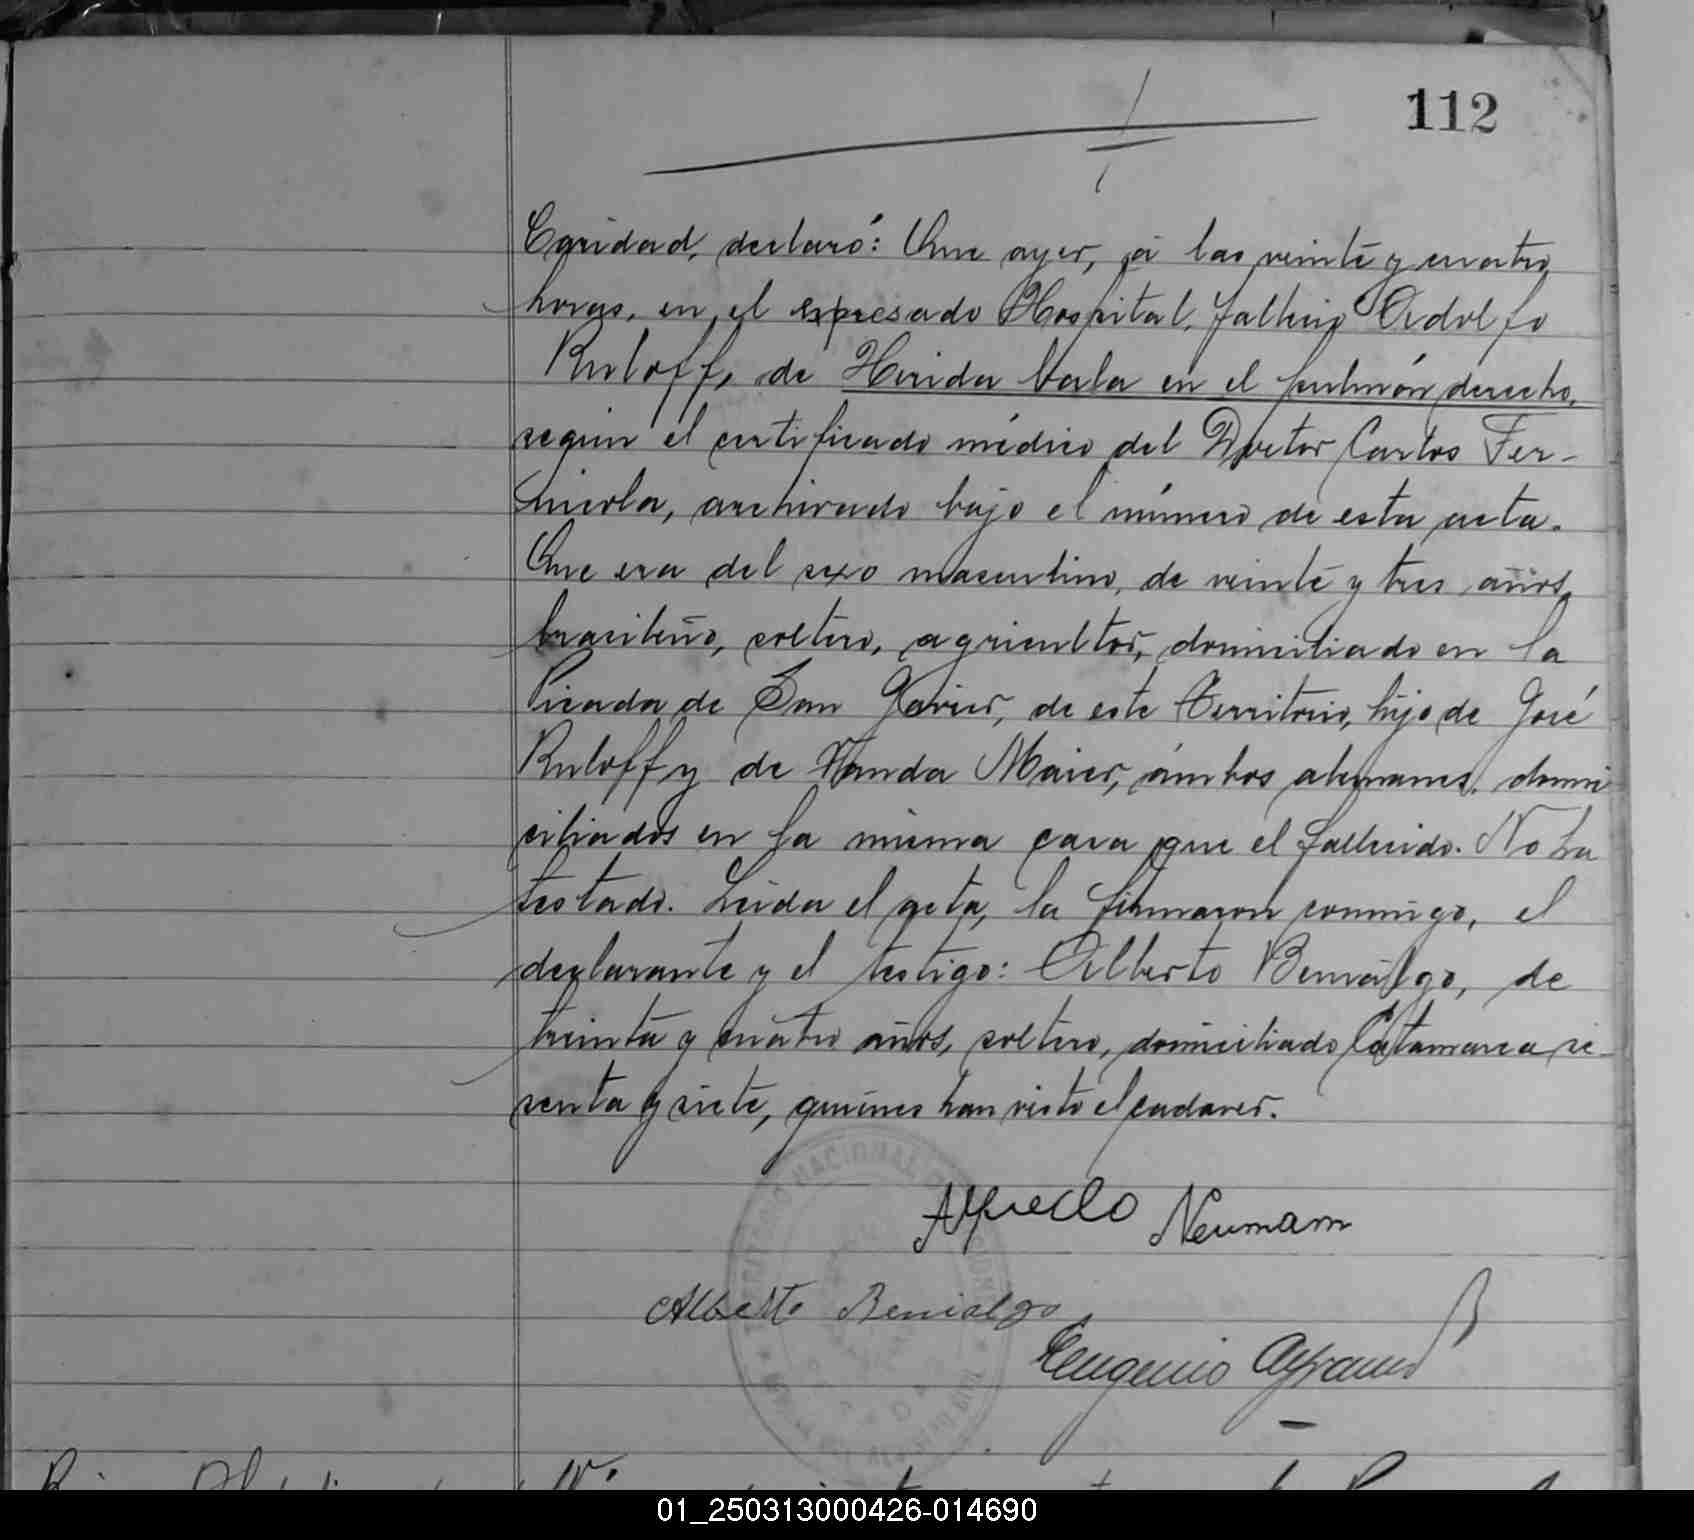 112
Caridad, declaró: Que ayer, á las veinte y cuatro
horas, en el expresado Hospital, falleció Adolfo
Ruloff, de Herida bala en el pulmón derecho,
según el certificado médico del Doctor Carlos Fer-
nicola, archivado bajo el número de esta acta.
Que era del sexo masculino, de veinte y tres años,
brasileño, soltero, agricultor, domiciliado en la
Picada de San Javier, de este Territorio, hijo de José
Ruloff y de Wanda Maier, ámbos alemanes, domi
ciliados en la misma casa que el fallecido. No ha
testado. Leida el acta, la firmaron conmigo, el
declarante y el testigo: Alberto Beniálgo, de
treinta y cuatro años, soltero, domiciliado Catamarca se-
senta y siete, quiénes han visto el cadáver.
Alfredo Neumann
Alberto Benialgo
Eugenio
TERRITORIO NACIONAL
01_250313000426-014690